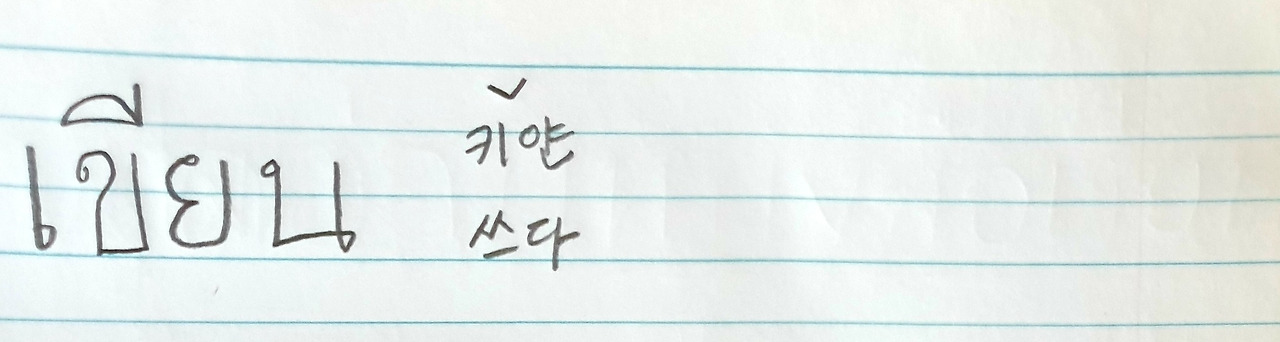 เขียน
키얀
쓰다